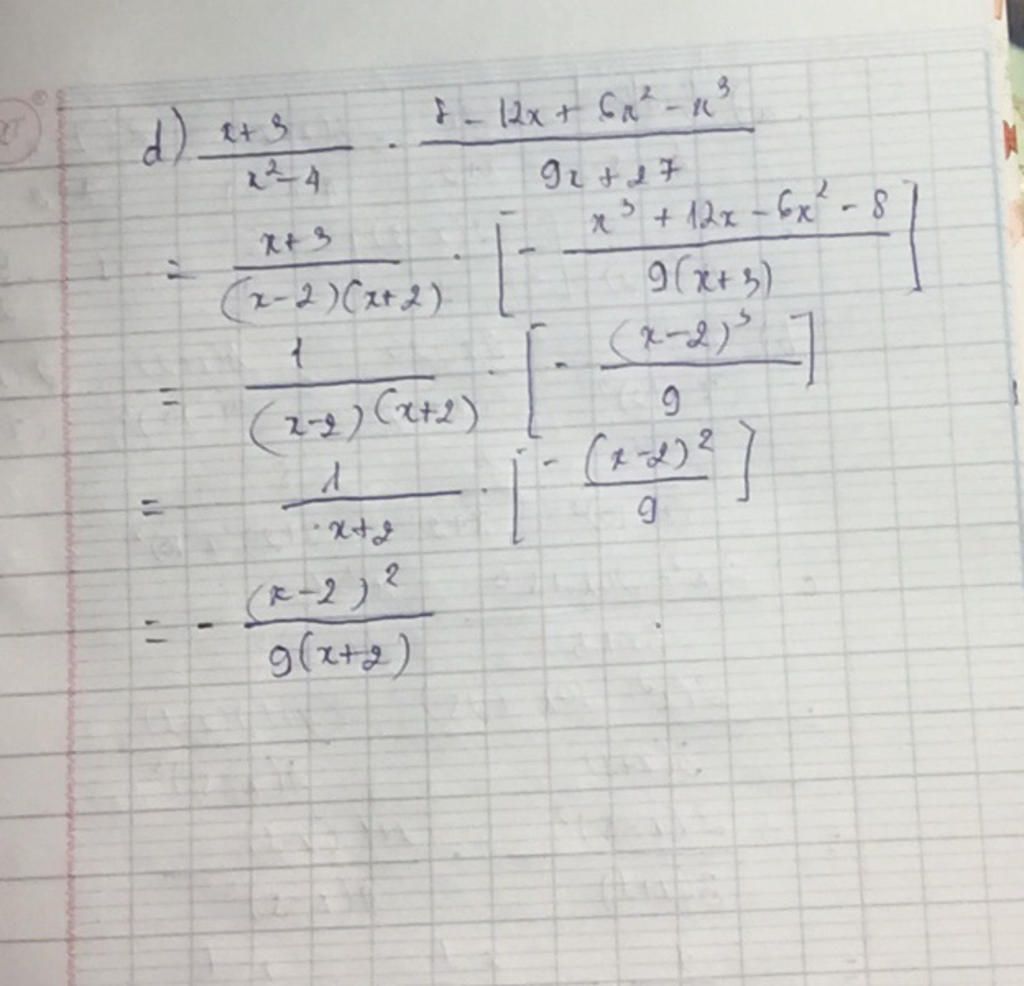 d) \frac{x+3}{x^2-4} . \frac{8-12x+6x^2-x^3}{9x+27}
= \frac{x+3}{(x-2)(x+2)} . [-\frac{x^3+12x-6x^2-8}{9(x+3)}]
= \frac{1}{(x-2)(x+2)} . [-\frac{(x-2)^3}{9}]
= \frac{1}{x+2} . [-\frac{(x-2)^2}{9}]
= -\frac{(x-2)^2}{9(x+2)}